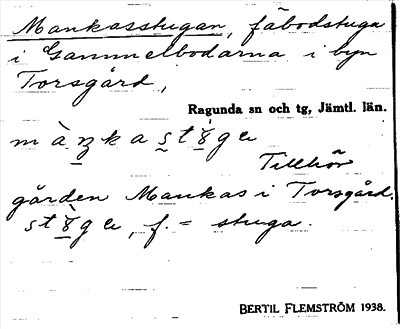 Mankasstugan, fäbodstuga
i Gammelbodarna i byn
Torsgård,
Ragunda sn och tg, Jämtl. län.
Tillhör
gården Mankas i Torsgård.
f. = stuga.
BERTIL FLEMSTRÖM 1938.